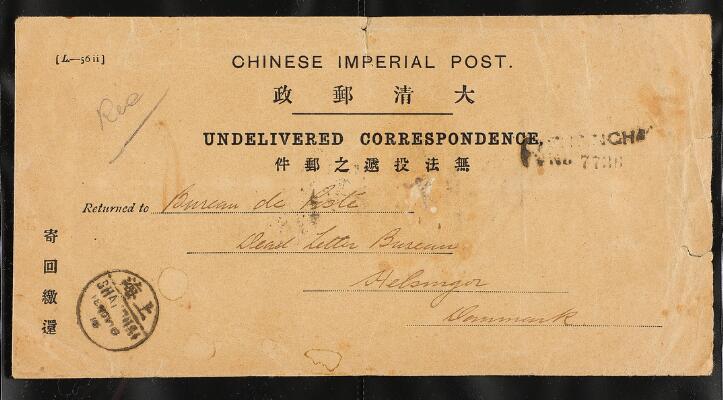 [L.—56 ii]
CHINESE IMPERIAL POST.
政郵清大
UNDELIVERED CORRESPONDENCE.
件郵之遞投法無
No 7736
Reg
Returned to Bureau de Poste
Dead Letter Bureau
Helsingor
Danmark
寄回繳還
上海